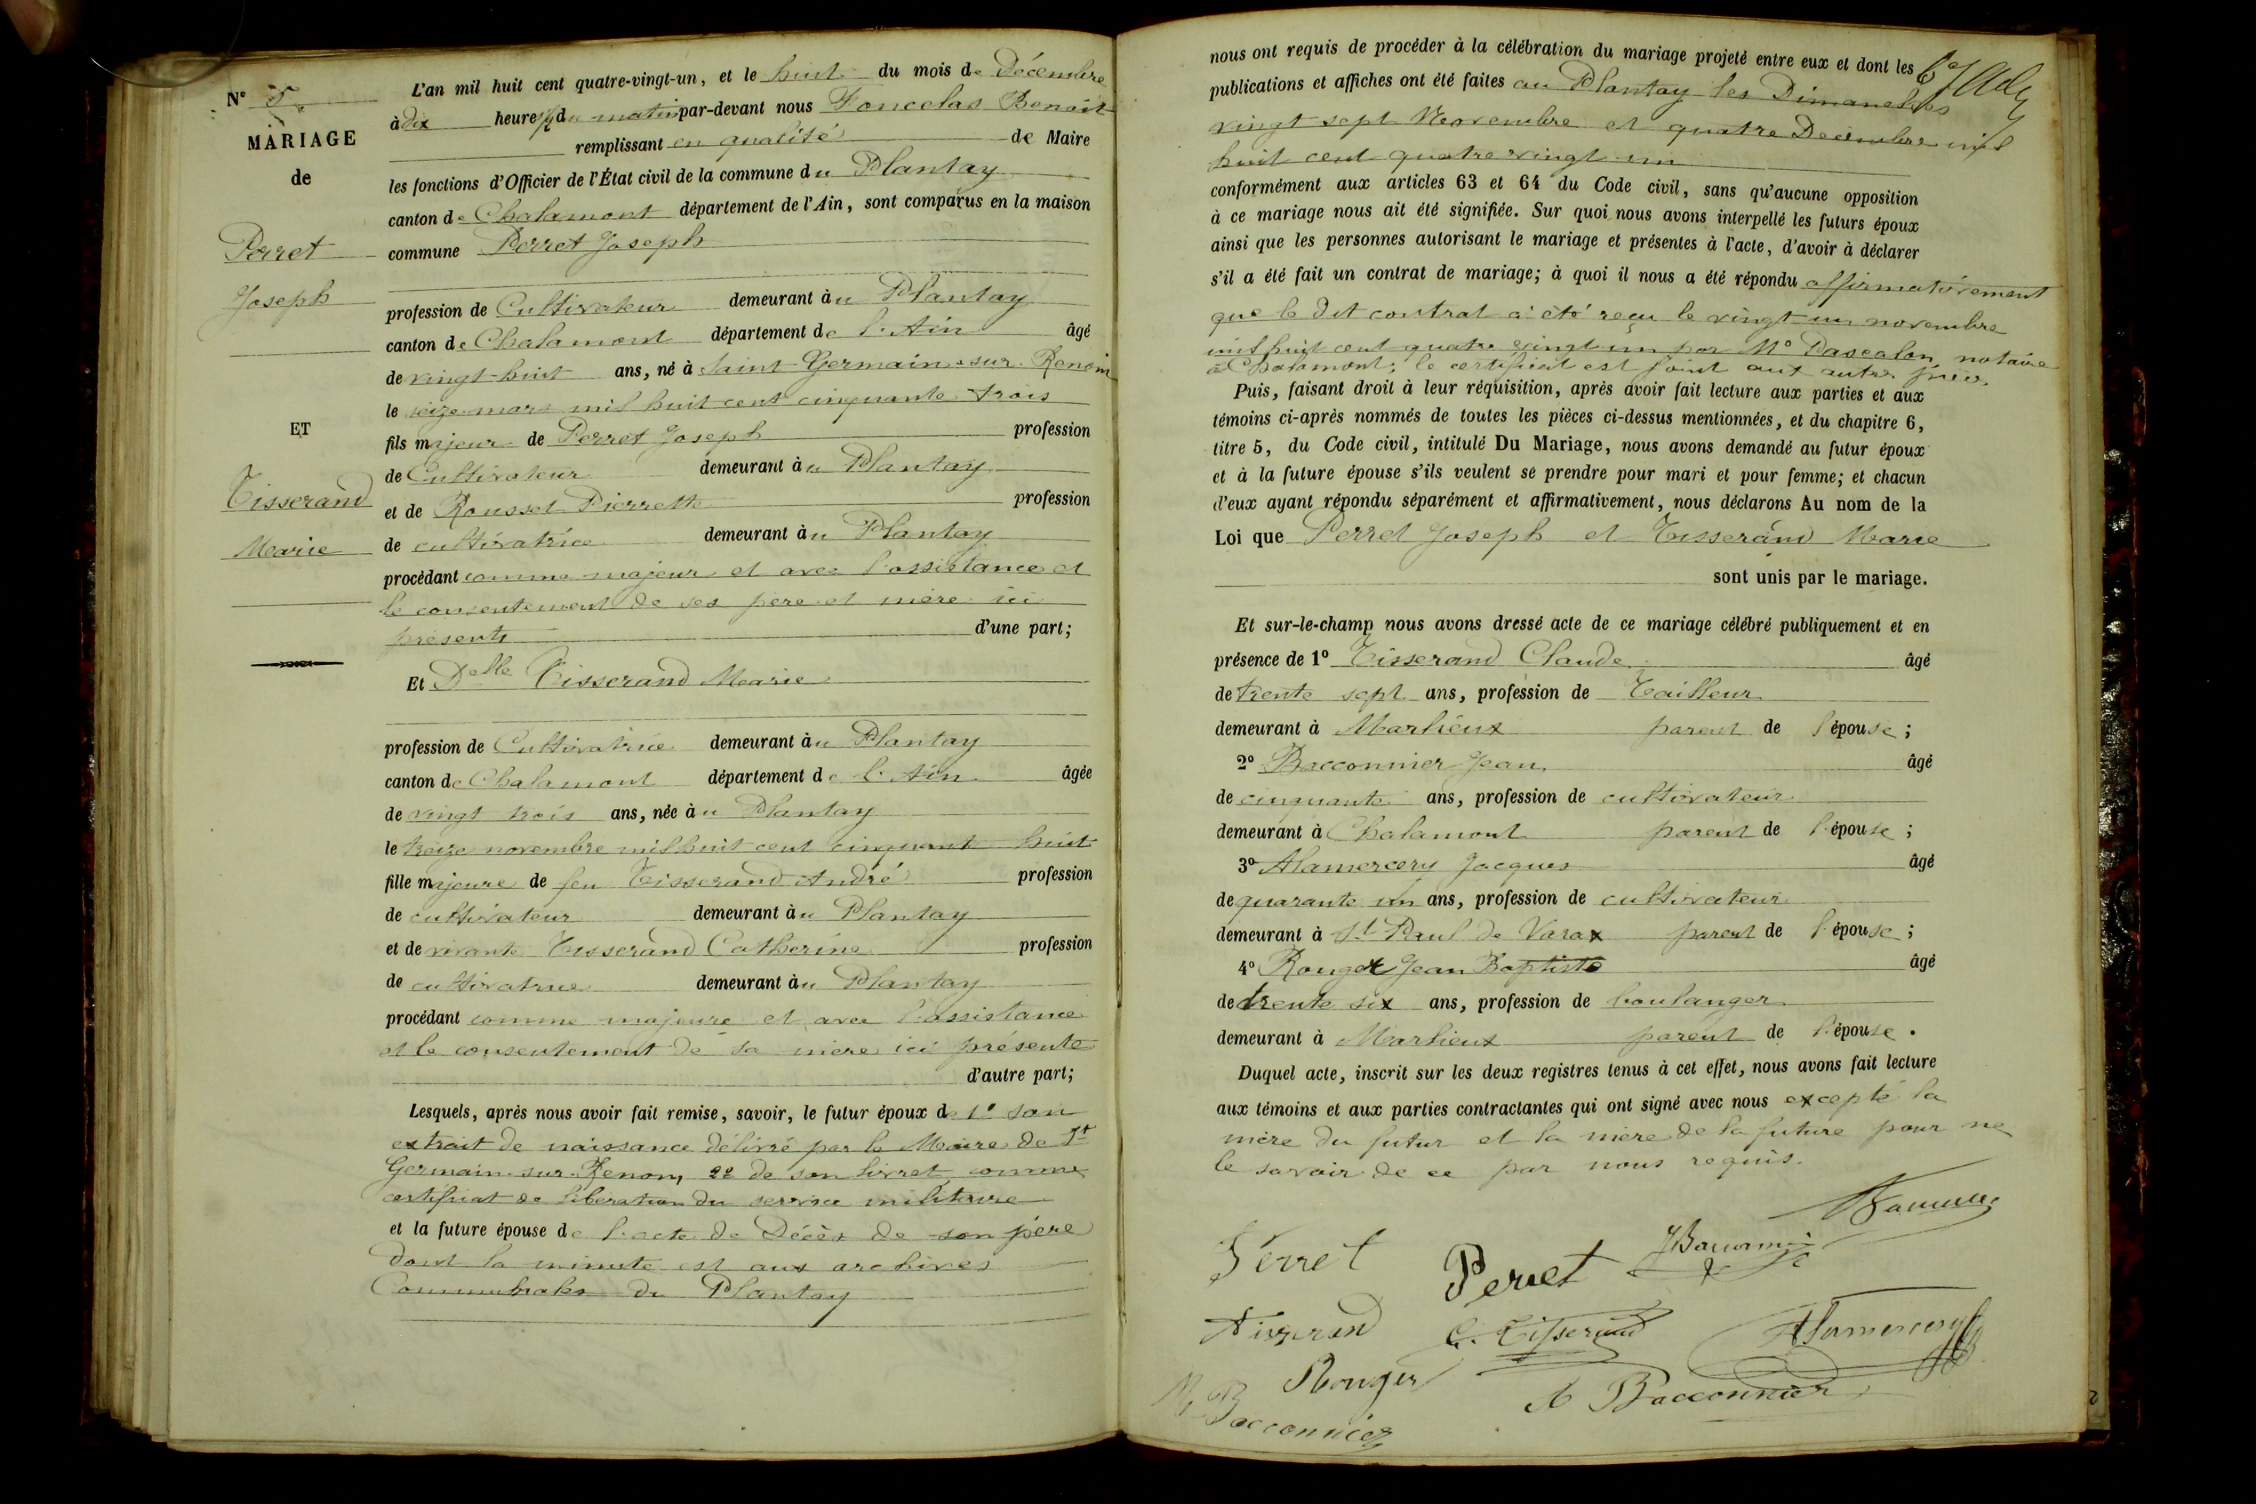 N° 5
MARIAGE
de
Perret
Joseph
ET
Tisserand
Marie
L'an mil huit cent quatre-vingt-un, et le huit du mois de Décembre
à dix heures du matin par-devant nous Foncelas Benoit
remplissant en qualité de Maire
les fonctions d'Officier de l'État civil de la commune du Plantay
canton de Chalamont département de l'Ain, sont comparus en la maison
commune Perret Joseph
profession de Cultivateur demeurant au Plantay
canton de Chalamont département de l'Ain âgé
de vingt-huit ans, né à Saint-Germain-sur-Renom
le seize mars mil huit cent cinquante trois
fils majeur de Perret Joseph profession
de Cultivateur demeurant au Plantay
et de Rousset Pierrette profession
de cultivatrice demeurant au Plantay
procédant comme majeur et avec l'assistance et
le consentement de ses père et mère ici
présents d'une part;
Et Delle Tisserand Marie
profession de Cultivatrice demeurant au Plantay
canton de Chalamont département de l'Ain âgée
de vingt trois ans, née au Plantay
le treize novembre mil huit cent cinquante huit
fille majeure de feu Tisserand André profession
de cultivateur demeurant au Plantay
et de vivante Tisserand Catherine profession
de cultivatrice demeurant au Plantay
procédant comme majeure et avec l'assistance
et le consentement de sa mère ici présente
d'autre part;
Lesquels, après nous avoir fait remise, savoir, le futur époux de 1° son
extrait de naissance délivré par le Maire de St
Germain-sur-Renom, 2e de son livret comme
certificat de libération du service militaire
et la future épouse de l'acte de Décès de son père
dont la minute est aux archives
Communales du Plantay
nous ont requis de procéder à la célébration du mariage projeté entre eux et dont les
publications et affiches ont été faites au Plantay les Dimanches
vingt sept Novembre et quatre Décembre mil
huit cent quatre vingt un
conformément aux articles 63 et 64 du Code civil, sans qu'aucune opposition
à ce mariage nous ait été signifiée. Sur quoi nous avons interpellé les futurs époux
ainsi que les personnes autorisant le mariage et présentes à l'acte, d'avoir à déclarer
s'il a été fait un contrat de mariage; à quoi il nous a été répondu affirmativement
que le dit contrat a été reçu le vingt un novembre
mil huit cent quatre vingt un par Me Pascalon notaire
à Chalamont; le certificat est joint aux autres pièces.
Puis, faisant droit à leur réquisition, après avoir fait lecture aux parties et aux
témoins ci-après nommés de toutes les pièces ci-dessus mentionnées, et du chapitre 6,
titre 5, du Code civil, intitulé Du Mariage, nous avons demandé au futur époux
et à la future épouse s'ils veulent se prendre pour mari et pour femme; et chacun
d'eux ayant répondu séparément et affirmativement, nous déclarons Au nom de la
Loi que Perret Joseph et Tisserand Marie
sont unis par le mariage.
Et sur-le-champ nous avons dressé acte de ce mariage célébré publiquement et en
présence de 1° Tisserand Claude âgé
de trente sept ans, profession de Tailleur
demeurant à Marlieux parent de l'épouse;
2° Bacconnier Jean âgé
de cinquante ans, profession de cultivateur
demeurant à Chalamont parent de l'épouse;
3° Alamercery Jacques âgé
de quarante un ans, profession de cultivateur
demeurant à St Paul de Varax parent de l'épouse;
4° Rouget Jean Baptiste âgé
de trente six ans, profession de boulanger
demeurant à Marlieux parent de l'épouse.
Duquel acte, inscrit sur les deux registres tenus à cet effet, nous avons fait lecture
aux témoins et aux parties contractantes qui ont signé avec nous excepté la
mère du futur et la mère de la future pour ne
le savoir de ce par nous requis.
Perret
Perret
Tisserand
C. Tisserand
Alamercery
Rouger
Bacconnier
Bacconnier